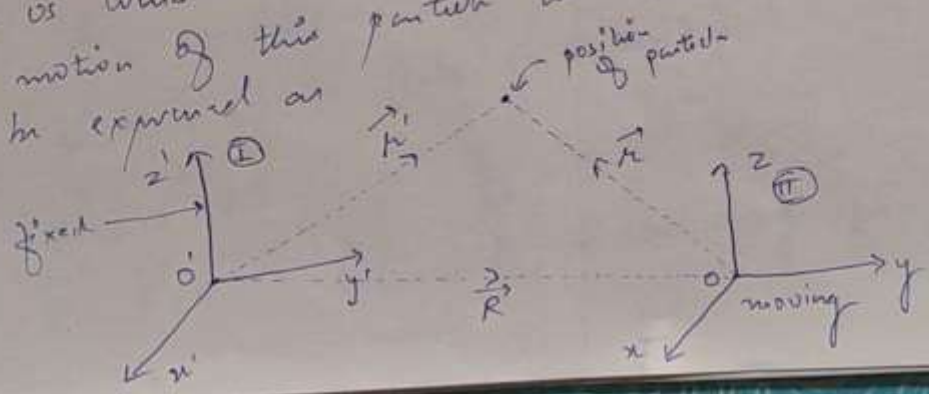 os
motion of this particle
be expressed as
position
of particle
z' I
r'
r
z
II
fixed
O'
y'
R
O
y
moving
x
x'